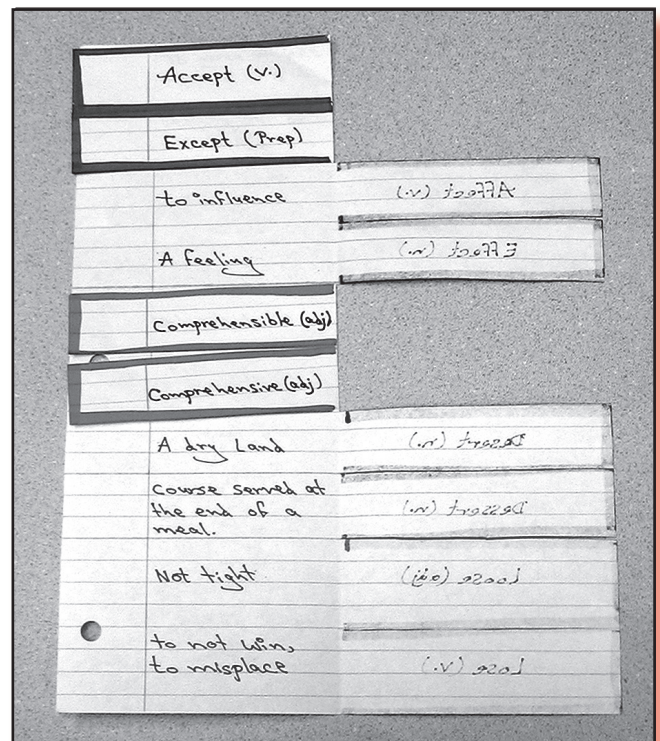 Accept (v.)
Except (Prep)
to influence
Affect (v.)
A feeling
Effect (n.)
Comprehensible (adj)
Comprehensive (adj)
A dry Land
Desert (n.)
course served at
the end of a
meal.
Dessert (n.)
Not tight
Loose (adj)
to not win,
to misplace
Lose (v.)